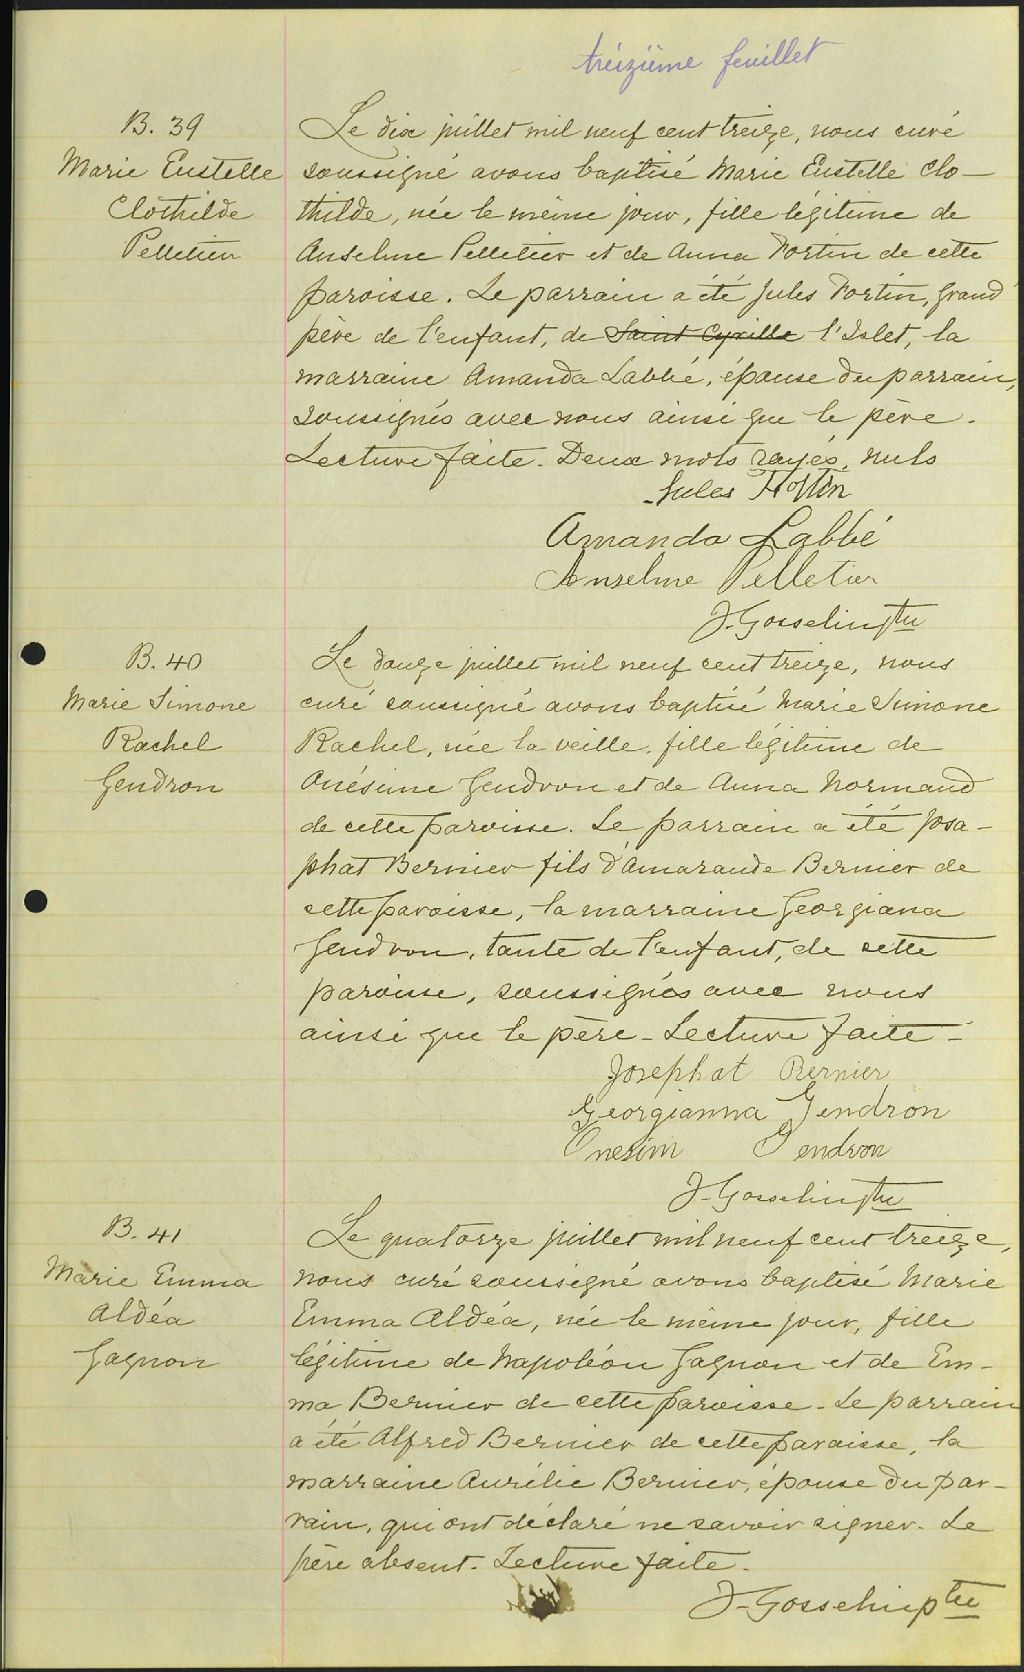 treizième feuillet
B. 39
Marie Eustelle
Clothilde
Pelletier
Le dix juillet mil neuf cent treize, nous curé
soussigné avons baptisé Marie Eustelle Clo-
thilde, née le même jour, fille légitime de
Anselme Pelletier et de Anna Fortin de cette
paroisse. Le parrain a été Jules Fortin, grand
père de l'enfant, de Saint Cyrille l'Islet, la
marraine Amanda Labbé, épouse du parrain,
soussignés avec nous ainsi que le père.
Lecture faite. Deux mots rayés, nuls
Jules Fortin
Amanda Labbé
Anselme Pelletier
J. Gosselin ptre
B. 40
Marie Simone
Rachel
Gendron
Le douze juillet mil neuf cent treize, nous
curé soussigné avons baptisé Marie Simone
Rachel, née la veille, fille légitime de
Onésime Gendron et de Anna Normand
de cette paroisse. Le parrain a été Josa-
phat Bernier fils d'Amarande Bernier de
cette paroisse, la marraine Georgiana
Gendron, tante de l'enfant, de cette
paroisse, soussignés avec nous
ainsi que le père - Lecture faite -
Josephat Bernier
Georgianna Gendron
Onesim Gendron
J. Gosselin ptre
B. 41
Marie Emma
Aldéa
Gagnon
Le quatorze juillet mil neuf cent treize,
nous curé soussigné avons baptisé Marie
Emma Aldéa, née le même jour, fille
légitime de Napoléon Gagnon et de Em-
ma Bernier de cette paroisse - Le parrain
a été Alfred Bernier de cette paroisse, la
marraine Aurélie Bernier, épouse du par-
rain, qui ont déclaré ne savoir signer. Le
père absent. Lecture faite.
J. Gosselin ptre